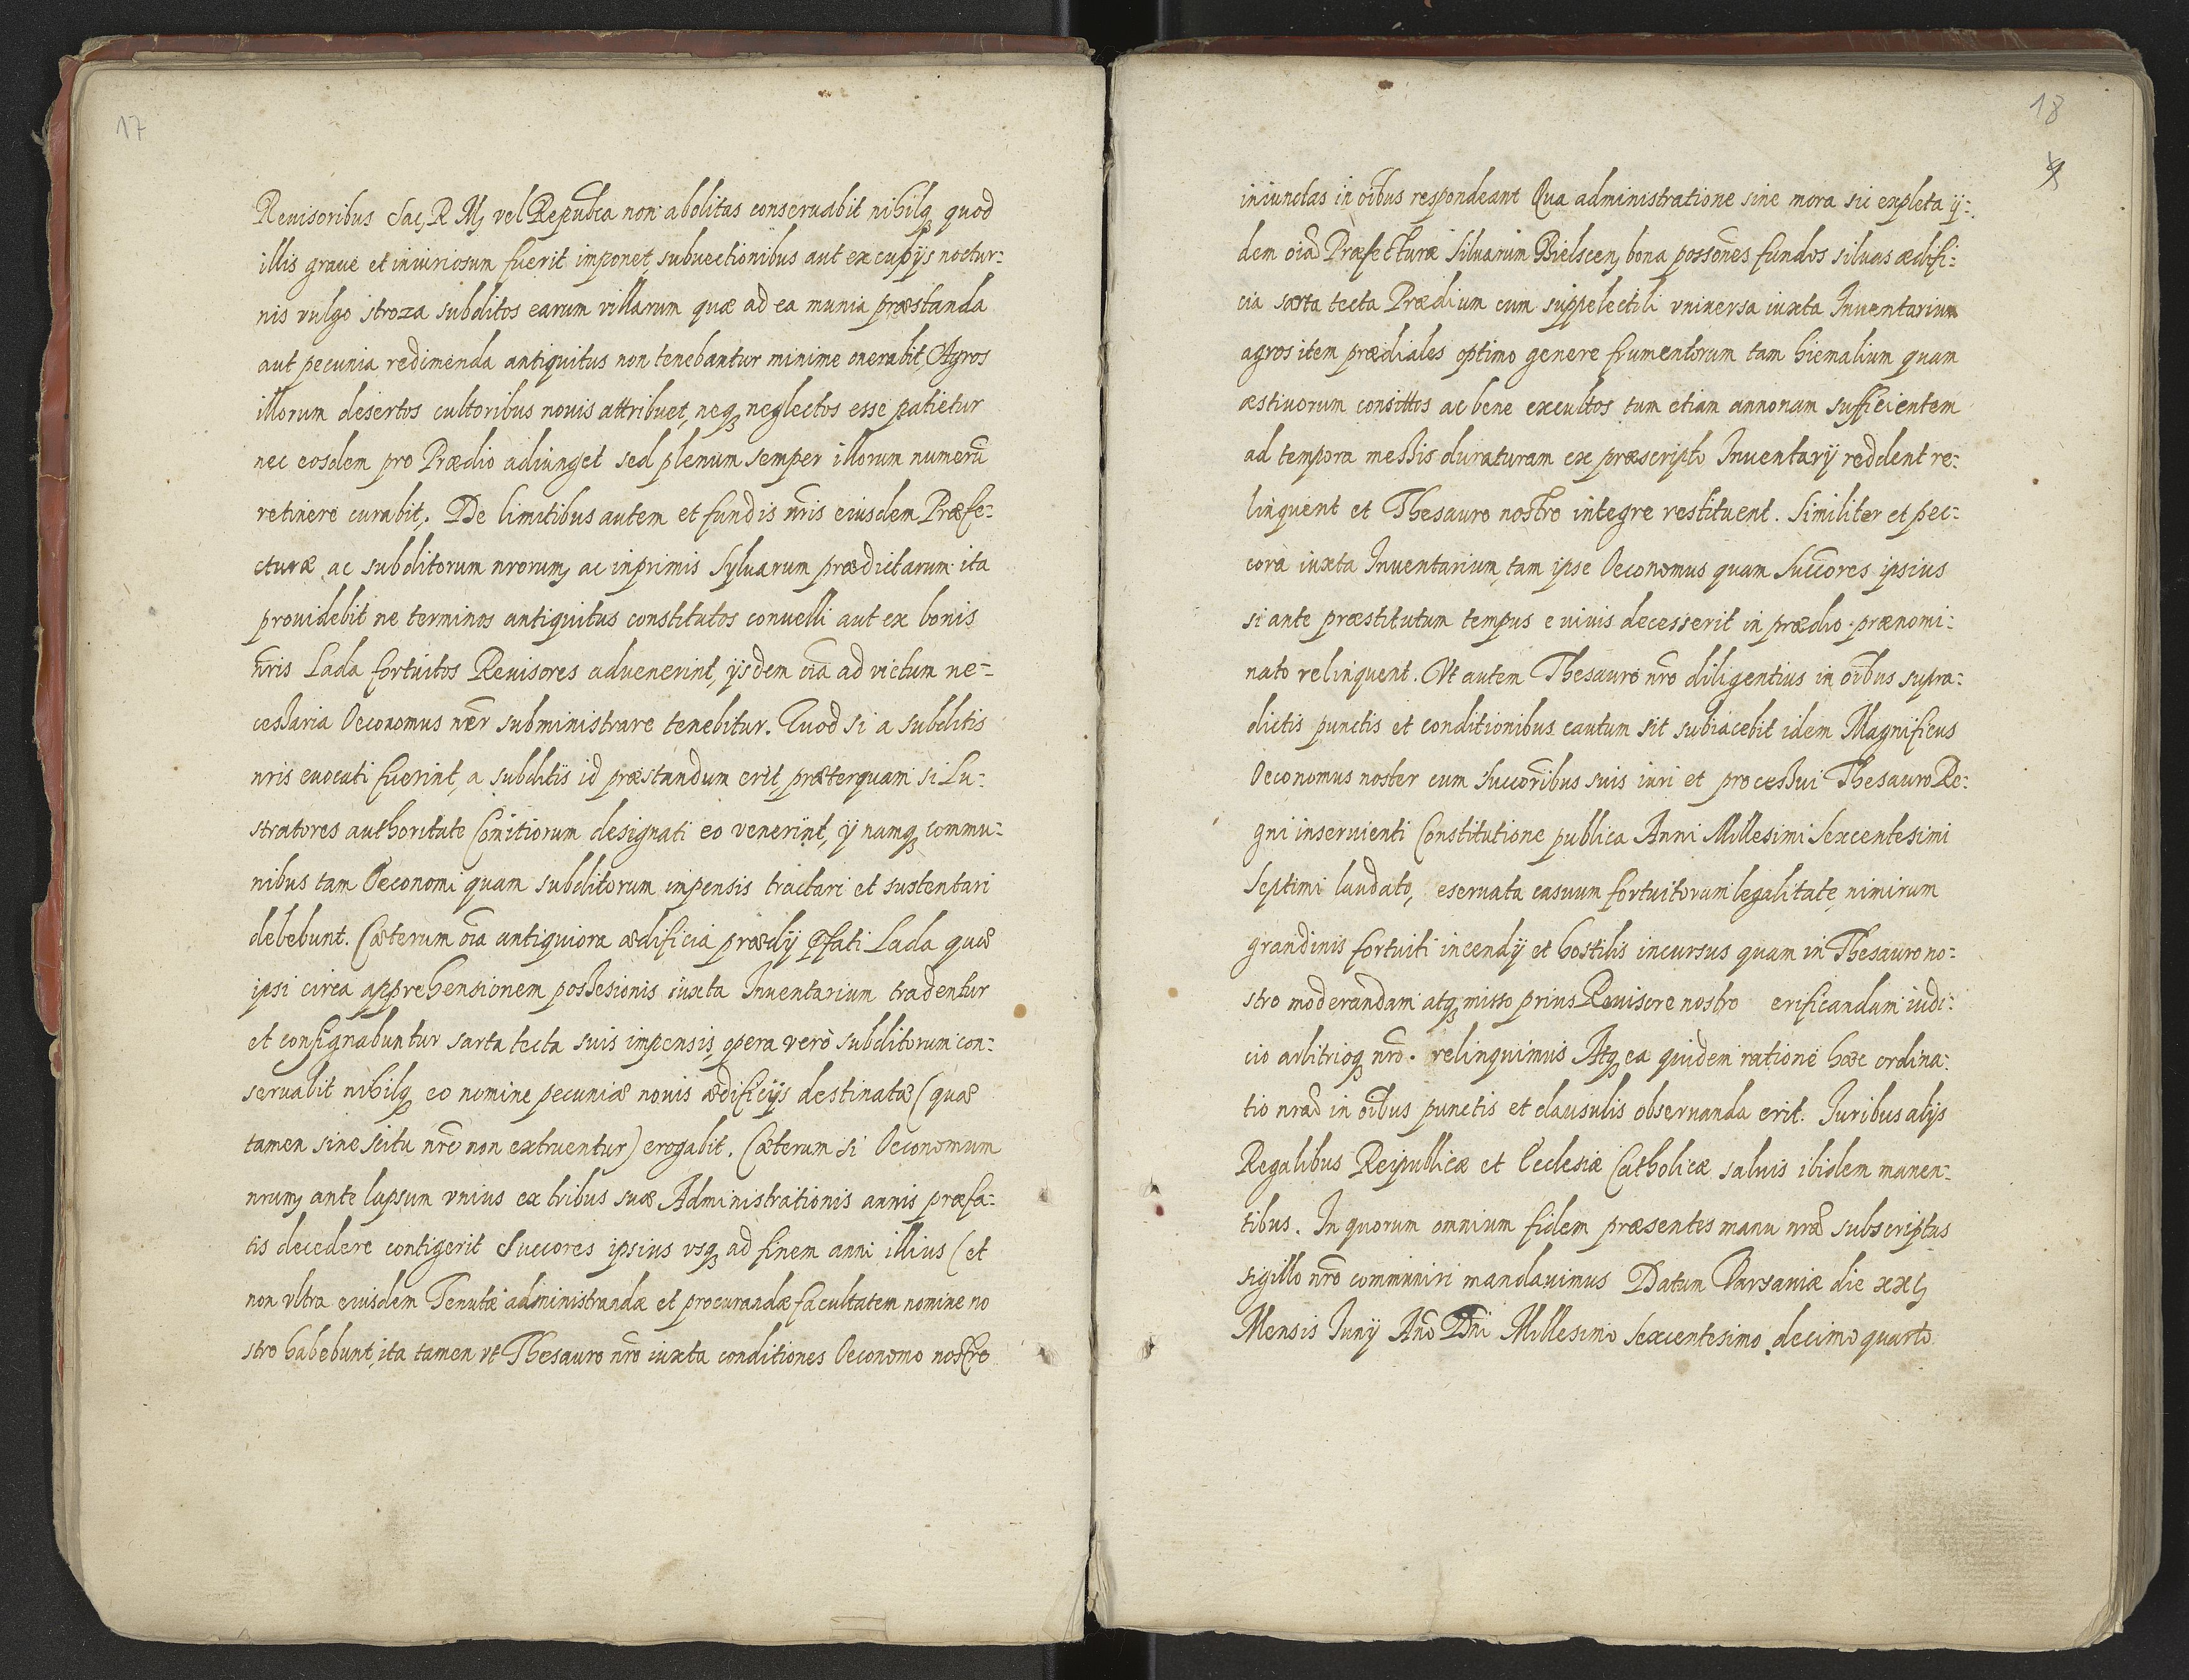 17
Reuisoribus Sac, R M, vel Repubca non abolitas conseruabit nihilq quod
illis graue et iniuriosum fuerit imponet, subuectionibus aut excubijs noctur=
nis vulgo stroza subditos earum villarum quæ ad ea munia præstanda
aut pecunia redimenda antiquitus non tenebantur minime onerabit, Agros
illorum desertos cultoribus nouis attribuet, neq neglectos esse patietur
nec eosdem pro Prædio adiunget sed plenum semper illorum numerū
retinere curabit. De limitibus autem et fundis nr̄is eiusdem Præfe=
cturæ ac subditorum nrorum, ac inprimis Syluarum prædictarum ita
prouidebit ne terminos antiquitus constitutos conuelli aut ex bonis
nr̄is Lada fortuitos Reuisores aduenerint, ijsdem oīa ad victum ne=
cessaria Oeconomus nēr subministrare tenebitur. Quod si a subditis
nris euocati fuerint, a subditis id præstandum erit, præterquam si Lu=
stratores authoritate Comitiorum designati eo venerint, ij namq commu=
nibus tam Oeconomi quam subditorum inpensis tractari et sustentari
debebunt. Cæterum oīa antiquiora ædificia prædij Pfati Lada quæ
ipsi circa apprehensionem possesionis iuxta Inuentarium tradentur
et consignabuntur sarta tecta suis impensis, opera verò subditorum con=
seruabit nihilq eo nomine pecuniæ nouis ædificijs destinatæ (quæ
tamen sine scitu nrō non extruentur) erogabit. Cæterum si Oeconomum
nrum, ante lapsum vnius ex tribus suæ Administrationis annis præfa=
tis decedere contigerit Succores ipsius vsq ad finem anni illius (et
non vltra eiusdem Tenutæ administrandæ et procurandæ facultatem nomine no
stro habebunt, ita tamen vt Thesauro nr̄o iuxta conditiones Oeconomo nostro
18
iniunctas in oībus respondeant Qua administratione sine mora sic expleta ij=
dem oīa Præfecturæ Siluarum Bielscen, bona possōnes fundos siluas ædifi=
cia sarta tecta Prædium cum suppelectili vniuersa iuxta Inuentarium
agros item prædiales optimo genere frumentorum tam hiemalium quam
æstiuorum consittos ac bene excultos tum etiam annonam sufficientem
ad tempora messis duraturam ex præscripto Inuentarij reddent re=
linquent et Thesauro nostro integre restituent. Similiter et pec=
cora iuxta Inuentarium, tam ipse Oeconomus quam Succōres ipsius
si ante præstitutum tempus e viuis decesserit in prædio prænomi=
nato relinquent. Vt autem Thesauro nrō diligentius in oībus supra=
dictis punctis et conditionibus cautum sit subiacebit idem Magnificus
Oeconomus noster cum Succorībus suis iuri et processui Thesauro Re=
gni inseruienti Constitutione publica Anni Millesimi Sexcentesimi
Septimi laudato, eseruata casuum fortuitorum legalitate, nimirum
grandinis fortuiti incendij et hostilis incursus quam in Thesauro no=
stro moderandam atq misso prius Reuisore nostro erificandam iudi=
cio arbitrioq nrō. relinquimus Atq ea quidem ratione hæc ordina=
tio nrā in oībus punctis et clausulis obseruanda erit. Iuribus alijs
Regalibus Reipublicæ et Ecclesiæ Catholicæ saluis ibidem manen=
tibus. In quorum omnium fidem præsentes manu nrā subscriptas
sigillo nrō communiri mandauimus Datum Varsauiæ die xx,
Mensis Iunij Anō Dnī Millesimo Sexcentesimo decimo quarto